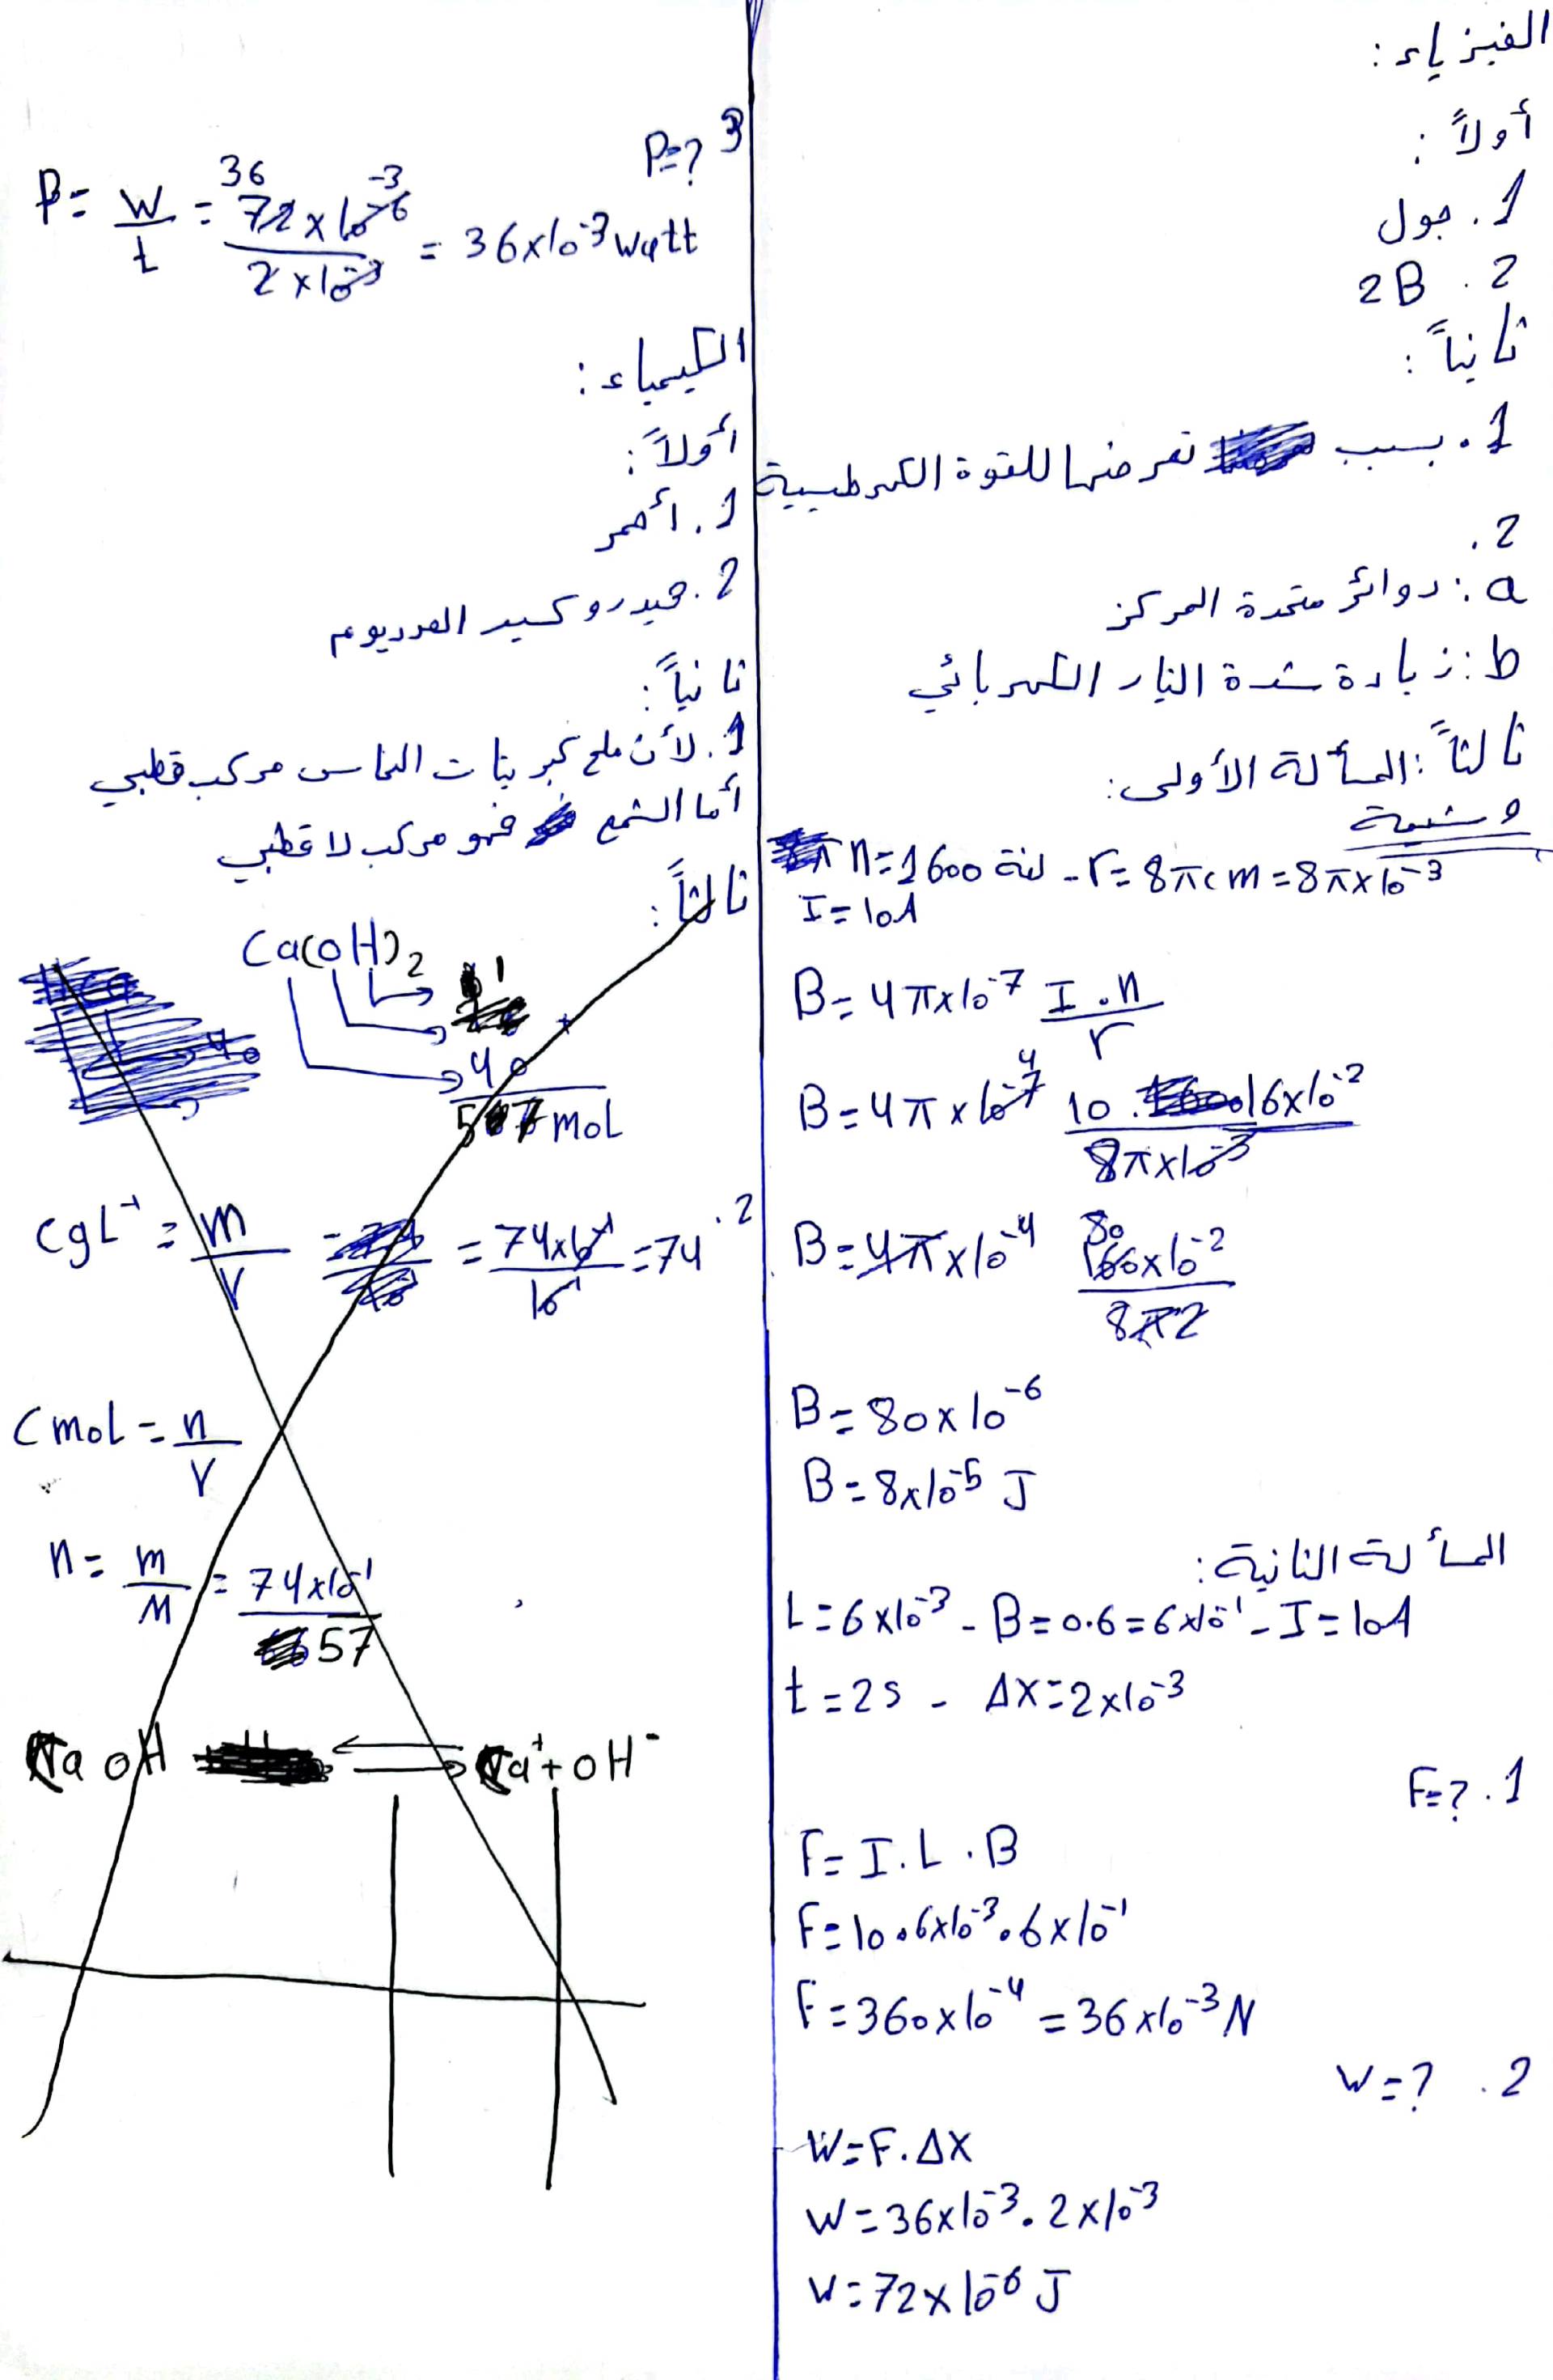 الفيزياء:
أولاً:
1. جول
2. 2B
ثانياً:
1. بسبب تعرضها للقوة الكهرطيسية
2.
a: دوائر متحدة المركز
b: زيادة شدة التيار الكهربائي
ثالثاً: المسألة الأولى:
وشيعة
n=1600 لفة - r= 8πcm = 8π×10⁻³
I=10A
B= 4π×10⁻⁷ I.n/r
B=4π×10⁻⁷ 10.16×10⁻²/8π×10⁻³
B=4π×10⁻⁴ 160×10⁻²/8π2
B=80×10⁻⁶
B=8×10⁻⁵ J
المسألة الثانية:
L=6×10⁻³ - B=0.6=6×10⁻¹ - I=10A
t=2s - ΔX=2×10⁻³
1. F=?
F= I.L.B
F=10.6×10⁻³.6×10⁻¹
F=360×10⁻⁴ = 36×10⁻³ N
2. W=?
W=F.ΔX
W=36×10⁻³.2×10⁻³
W=72×10⁻⁶ J
3 P=?
P= W/t = 72×10⁻⁶/2×10⁻³ = 36×10⁻³ watt
الكيمياء:
أولاً:
1. أحمر
2. هيدروكسيد الصوديوم
ثانياً:
1. لأن ملح كبريتات النحاس مركب قطبي
أما الشمع فهو مركب لا قطبي
ثالثاً:
Ca(OH)₂
1
40
57 mol
CgL⁻¹ = m/V = 74×10⁻¹/10⁻¹ = 74 .2
Cmol = n/V
n= m/M = 74×10⁻¹/57
OH ⇌ + OH⁻